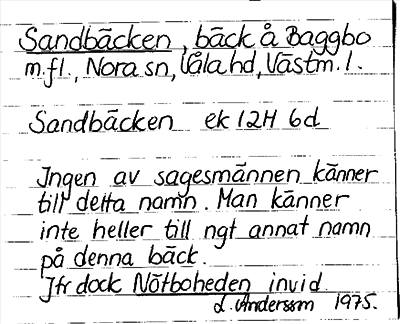 Sandbäcken, bäck å Baggbo
m.fl., Nora sn, Våla hd, Västm. l.
Sandbäcken ek 12H 6d
Ingen av sagesmännen känner
till detta namn. Man känner
inte heller till ngt annat namn
på denna bäck.
Jfr dock Nötboheden invid.
L. Andersson 1975.